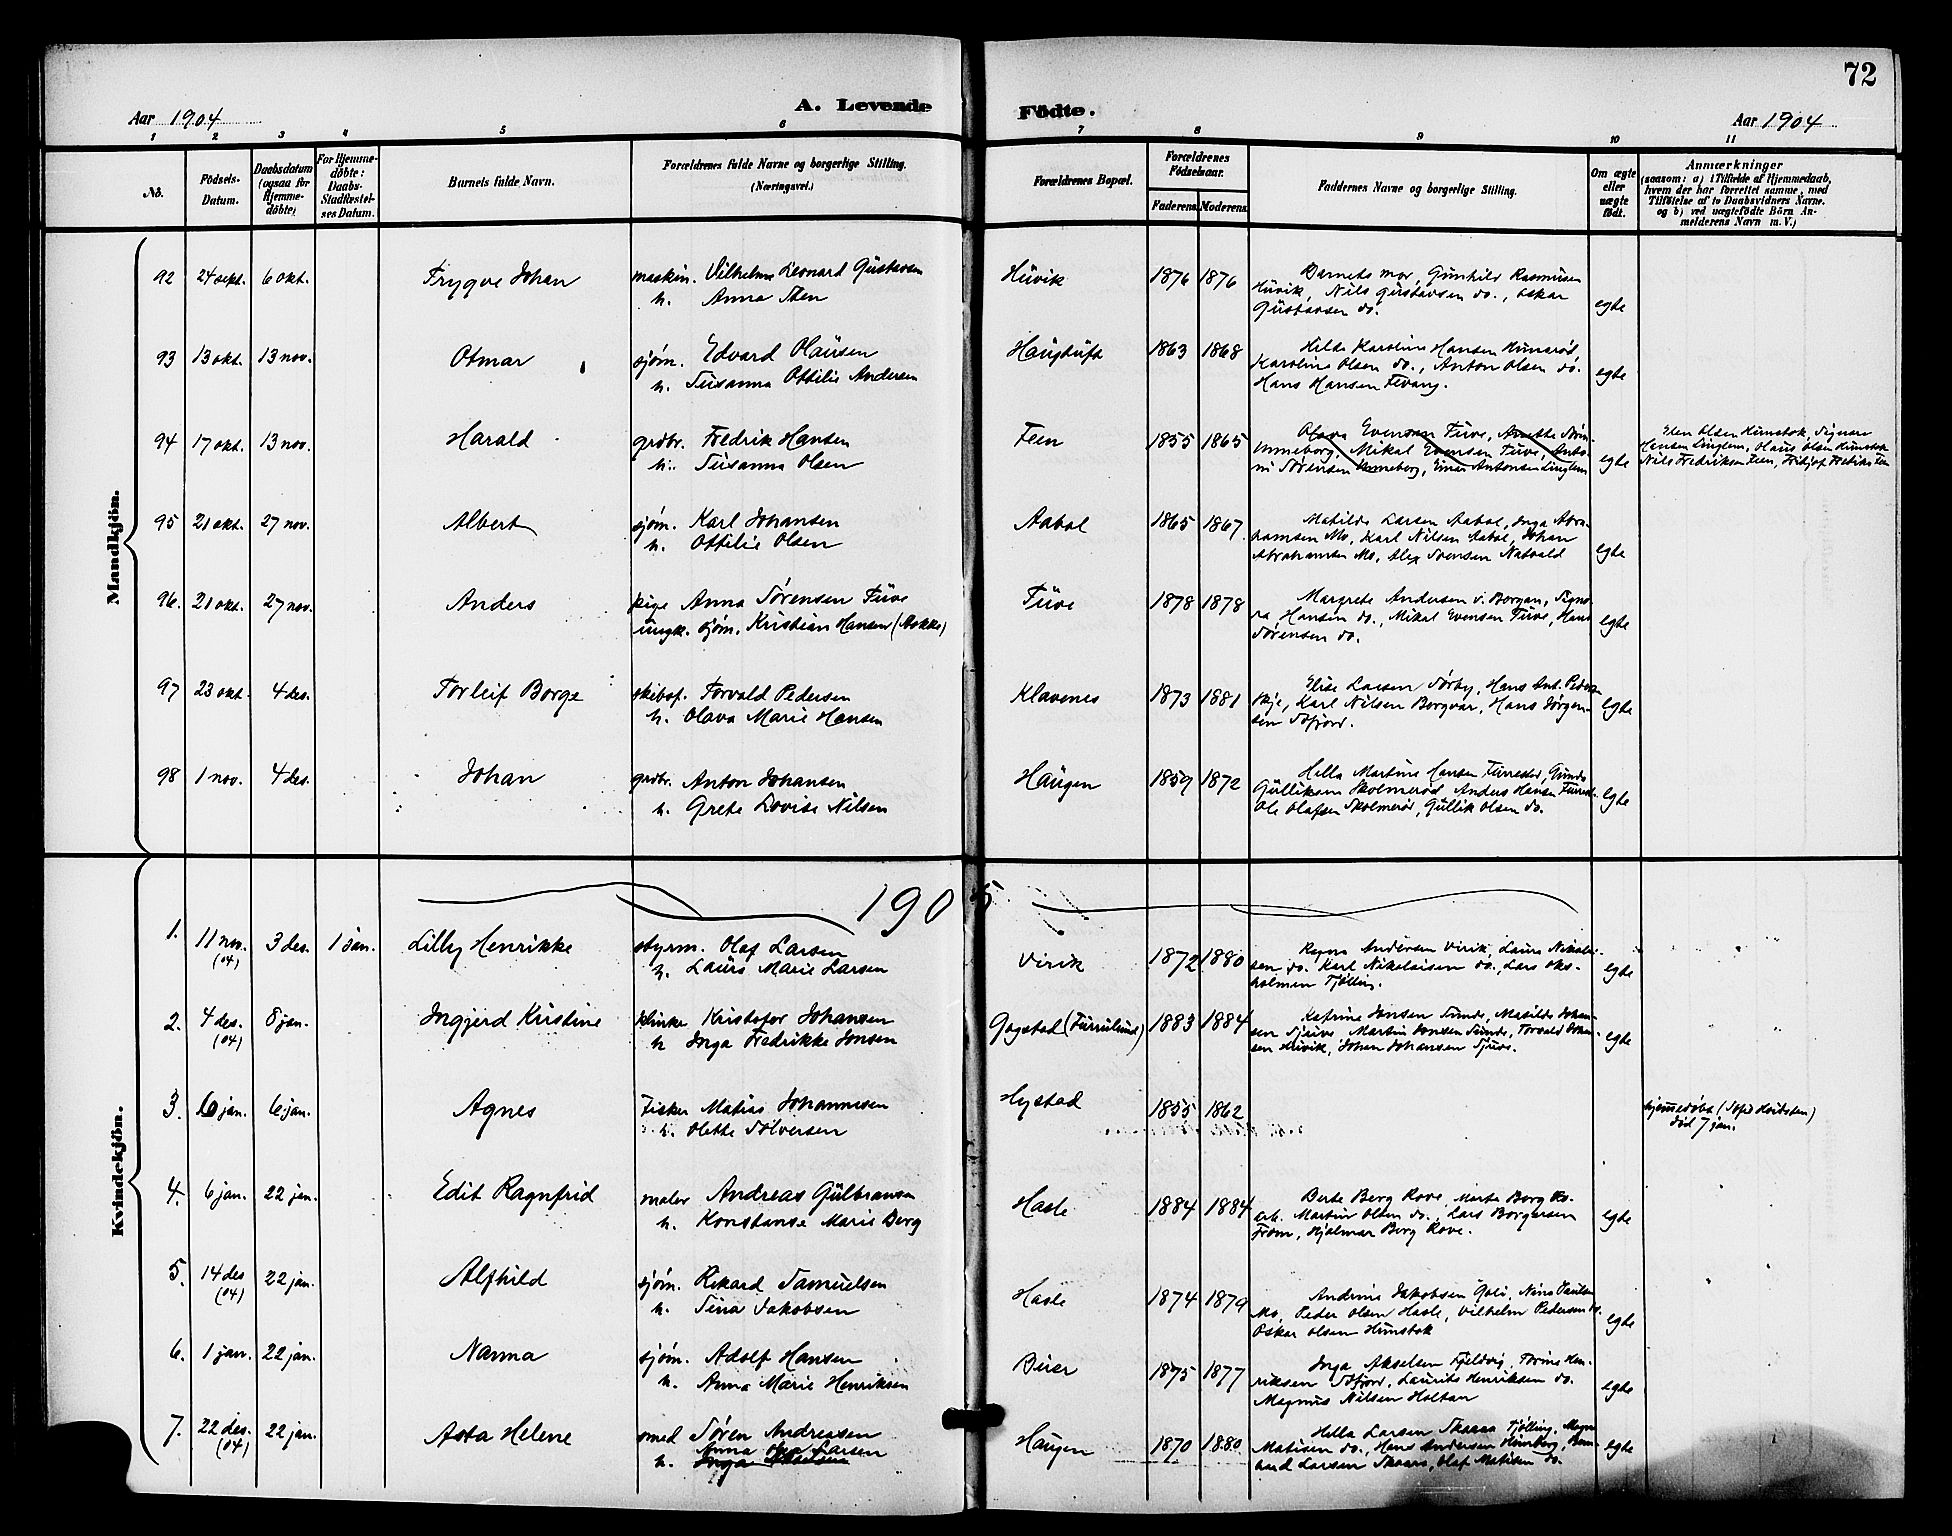 72
A. Levende Födte.
Aar 1904
Aar 1904
1 2 3 4 5 6 7 8 9 10 11
No.
Födsels-Datum.
Daabsdatum (ogsaa for Hjemmedöbte)
For Hjemmedöbte: Daabs-Stadfæstelses Datum.
Barnets fulde Navn.
Forældrenes fulde Navne og borgerlige Stilling. (Næringsvei.)
Forældrenes Bopæl.
Forældrenes Födselsaar.
Faderens Moderens
Faddernes Navne og borgerlige Stilling.
Om ægte eller uægte födt.
Anmærkninger
(saasom: a) i Tilfælde af Hjemmedaab, hvem der har forrettet samme, med Tilföielse af to Daabsvidners Navne, og b) ved uægtefödte Börn Anmelderens Navn m. V.)
Mandkjön.
92 24 sept. 6 okt. Trygve Johan maskin. Vilhelm Leonard Gustavsen
h. Anna Sten
Huvik 1876 1876 Barnets mor, Gunhild Rasmusen
Huvik, Nils Gustavsen do., Oskar
Gustavsen do. egte
93 13 okt. 13 nov. Otmar sjøm. Edvard Olausen
h. Susanna Ottilie Andersen
Haugtuft 1863 1868 Hilda Karoline Hansen
Karoline Olsen do., Anton Olsen do.
Hans Hansen Fevang. egte
94 17 okt. 13 nov. Harald grdbr. Fredrik Hansen
h. Susanna Olsen
Feen 1855 1865 Olava Evensen Tuve, Anette
Unneberg, Mikal Evensen Tuve,
Sørensen Unneberg, Einar Antonsen Lingelem egte
Elen Olsen Himstok, Signora
Hansen Lingelem, Olaus Olsen Himstok
Nils Fredriksen Feen, Fritjof Fredriks. Feen
95 21 okt. 27 nov. Albert sjøm. Karl Johansen
h. Ottilie Olsen
Aabol 1865 1867 Matilde Larsen Aabol, Inga Abra-
hamsen Mo, Karl Nilsen Aabol, Johan
Abrahamsen Mo, Alex Svensen Natvald egte
96. 21 okt. 27 nov. Anders pige Anna Sørensen Tuve
ungk. sjøm. Kristian Hansen (Aokke)
Tuve 1878 1878 Margrete Andersen v. Borgan, Signo-
ra Hansen do., Mikal Evensen Tuve, Hans
Sørensen do. egte
97 23 okt. 4 des. Torleif Borge skibsf. Torvald Pedersen
h. Olava Marie Hansen
Klavenes 1873 1881 Elise Larsen Sørby, Hans Ant. Peders.
Karl Nilsen Borgvar, Hans Jørgen-
sen egte
98 1 nov. 4 des. Johan grdbr. Anton Johansen
h. Grete Lovise Nilsen
Haugen 1859 1872 Hella Martine Hansen Furustad, Gunda
Gulliksen Skolmerød Anders Hansen
Ole Olafsen Skolmerød, Gullik Olsen do. egte
1905
Kvindekjön.
1. 11 nov. (04) 3 des. 1 jan. Lilly Henrikke styrm. Olaf Larsen
h. Laura Marie Larsen
Virik 1872 1880 Ragna Andersen Virik, Laura Nikolai-
sen do. Karl Nikolaisen do., Lars Oks-
holmen Tjølling. egte
2. 4 des. (04) 8 jan. Ingjerd Kristine klinker Kristofer Johansen
h. Inga Fredrikke Jonsen
Gogstad (Furulund) 1883 1884 Katrine Jonsen Sunde, Matilde Johan-
sen Tjuve, Martin Jonsen Sunde, Torvald Johan-
sen Huvik, Johan Johansen Tjuve. egte
3. 6 jan. 6 jan. Agnes Fisker Matias Johannesen
h. Olette Sølversen
Hystad 1855 1862
hjemmedøbt
død 7 jan.
4. 6 jan. 22 jan. Edit Ragnfrid maler Andreas Gulbransen
h. Konstanse Marie Berg
Hasle 1884 1884 Berte Berg Rove, Marte Berg do.
arb. Martin Olsen do., Lars Borgersen
From, Hjalmar Berg Rove. egte
5. 14 des (04) 22 jan. Alfhild sjøm. Rikard Samuelsen
h. Sina Jakobsen
Hasle 1874 1879 Andrine Jakobsen Goli, Nina Paulsen
Mo, Peder Olsen Hasle, Vilhelm Pedersen do.
Oskar Olsen Himstok egte
6. 1 jan. 22 jan. Nanna sjøm. Adolf Hansen
h. Anna Marie Henriksen
Buer 1875 1877 Inga Akselsen Fjeldvig, Torine Hen-
riksen Laurits Henriksen do.
Magnus Nilsen Holtan egte
7. 22 des. (04) 22 jan. Asta Helene smed Søren Andreasen
h. Anna Larsen
Haugen 1870 1880 Hella Larsen Skaara Tjølling,
Matisen do., Hans Andersen Haneberg, Bern-
hard Larsen Skaara, Olaf Matisen do. egte